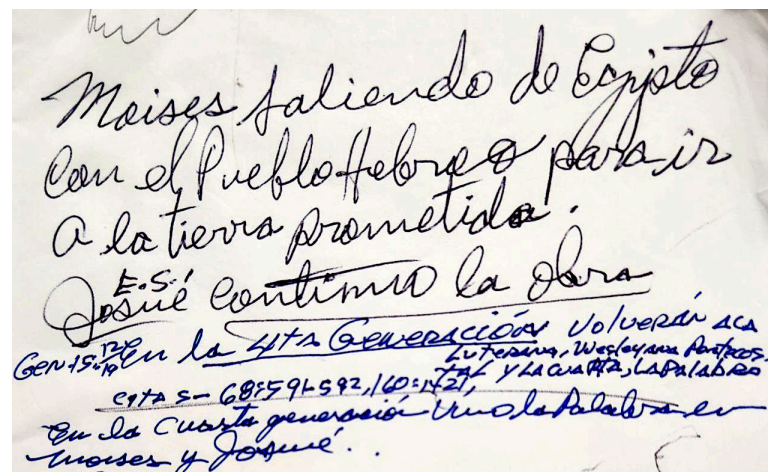 Moises saliendo de Egipto
Con el Pueblo Hebreo para ir
a la tierra prometida.
E.S.!
Josué continuo la obra
Gen-15:12-19 En la 4ta Generación Volverán acá
Luterana, Wesleyana Pentecos.
TAL Y LA CUARTA, LA PALABRA
cita S- 68:591-592, 160:1421,
En la cuarta generación Vino la Palabra en
Moises y Josué..